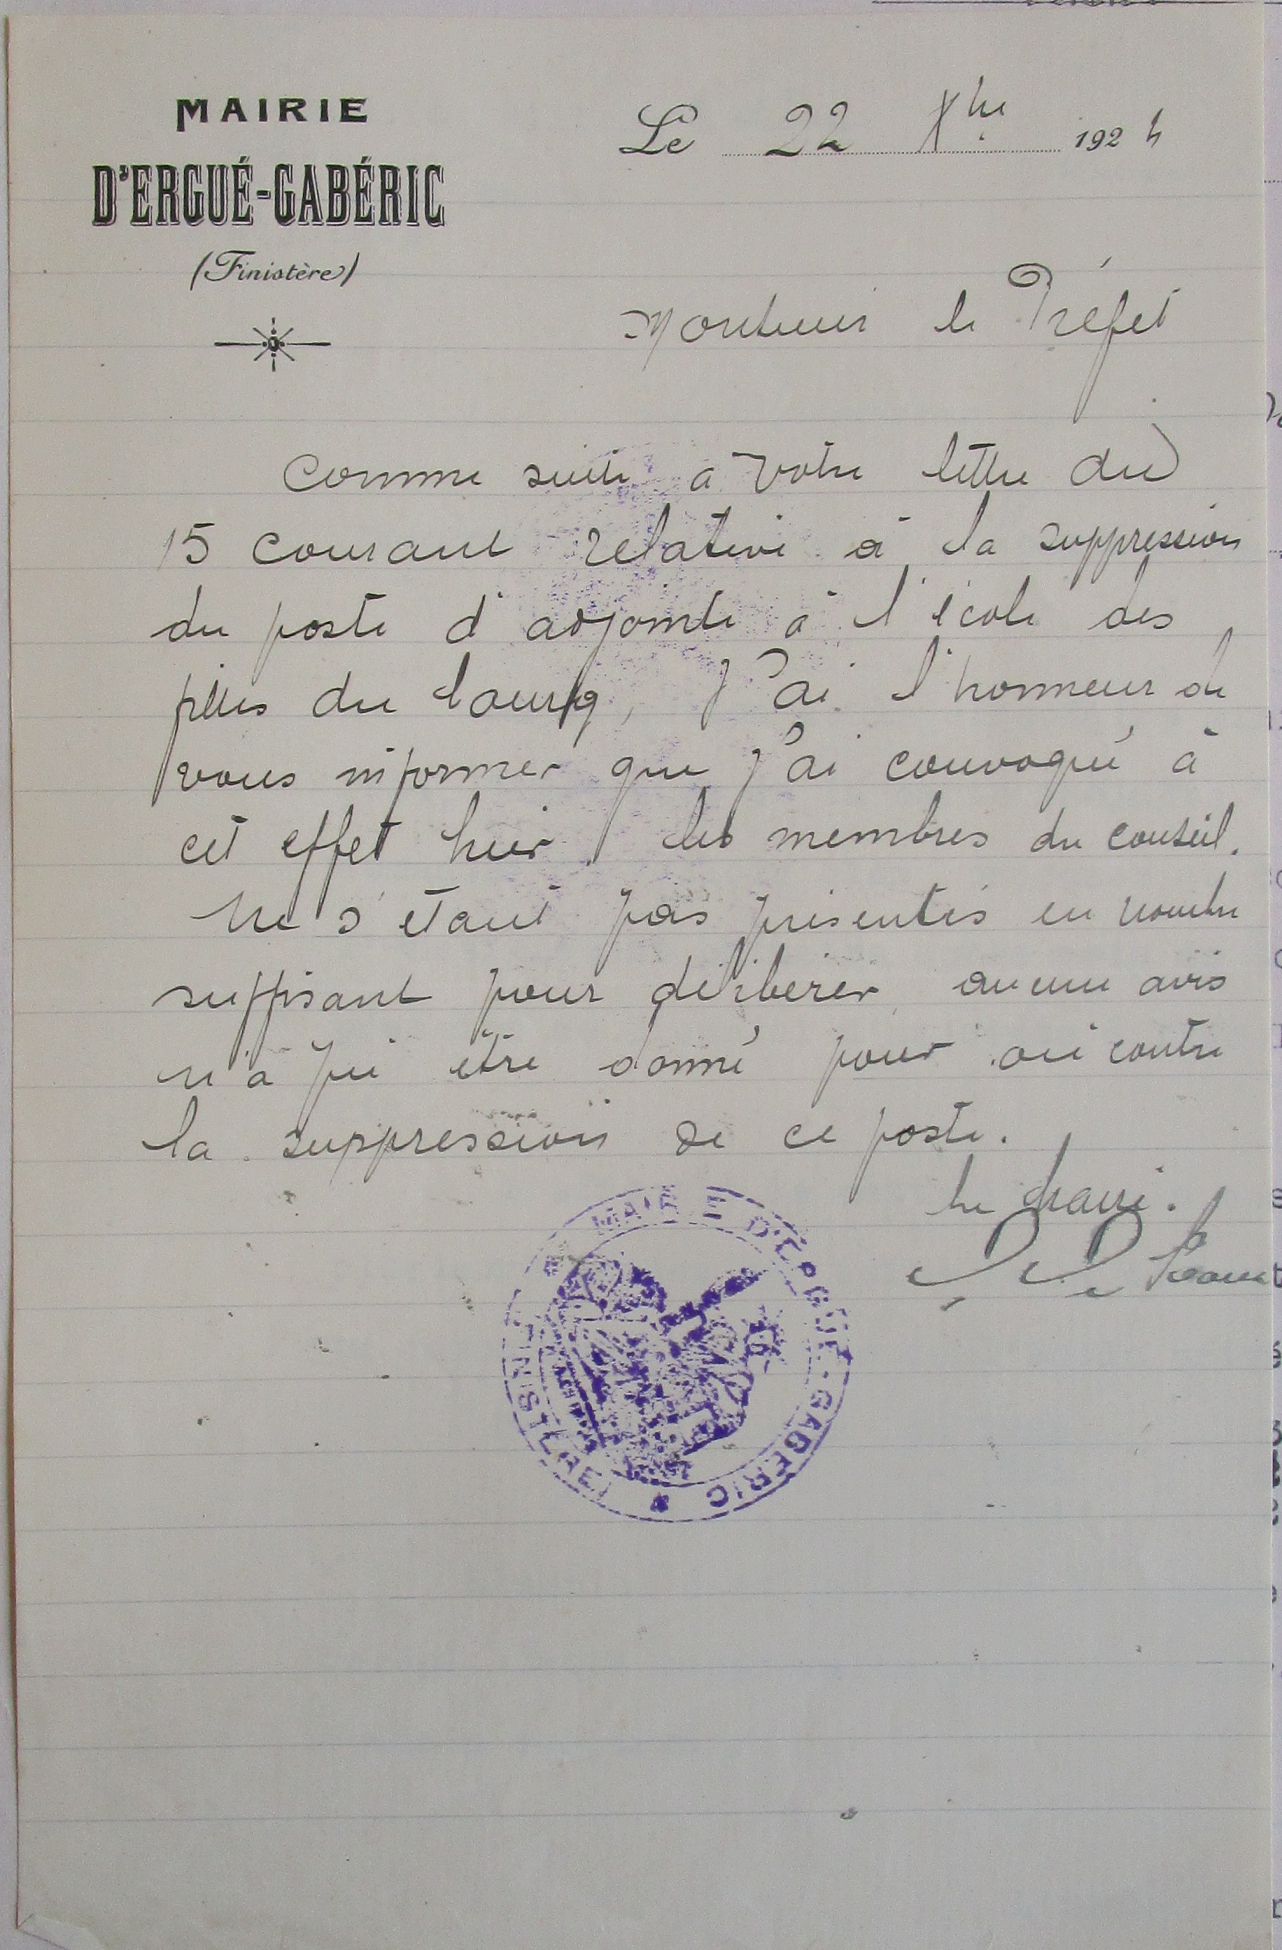 MAIRIE
D'ERGUÉ-GABÉRIC
(Finistère)
Le 22 Xbre 1924
Monsieur le Préfet
Comme suite a votre lettre du
15 courant relative à la suppression
du poste d'adjointe à l'école des
filles du bourg, j'ai l'honneur de
vous informer que j'ai convoqué à
cet effet hier les membres du conseil.
Ne s'étant pas présentés en nombre
suffisant pour délibérer aucun avis
n'a pu être donné pour ou contre
la suppression de ce poste.
Le Maire.
MAIRIE D'ERGUÉ-GABÉRIC
(FINISTÈRE)